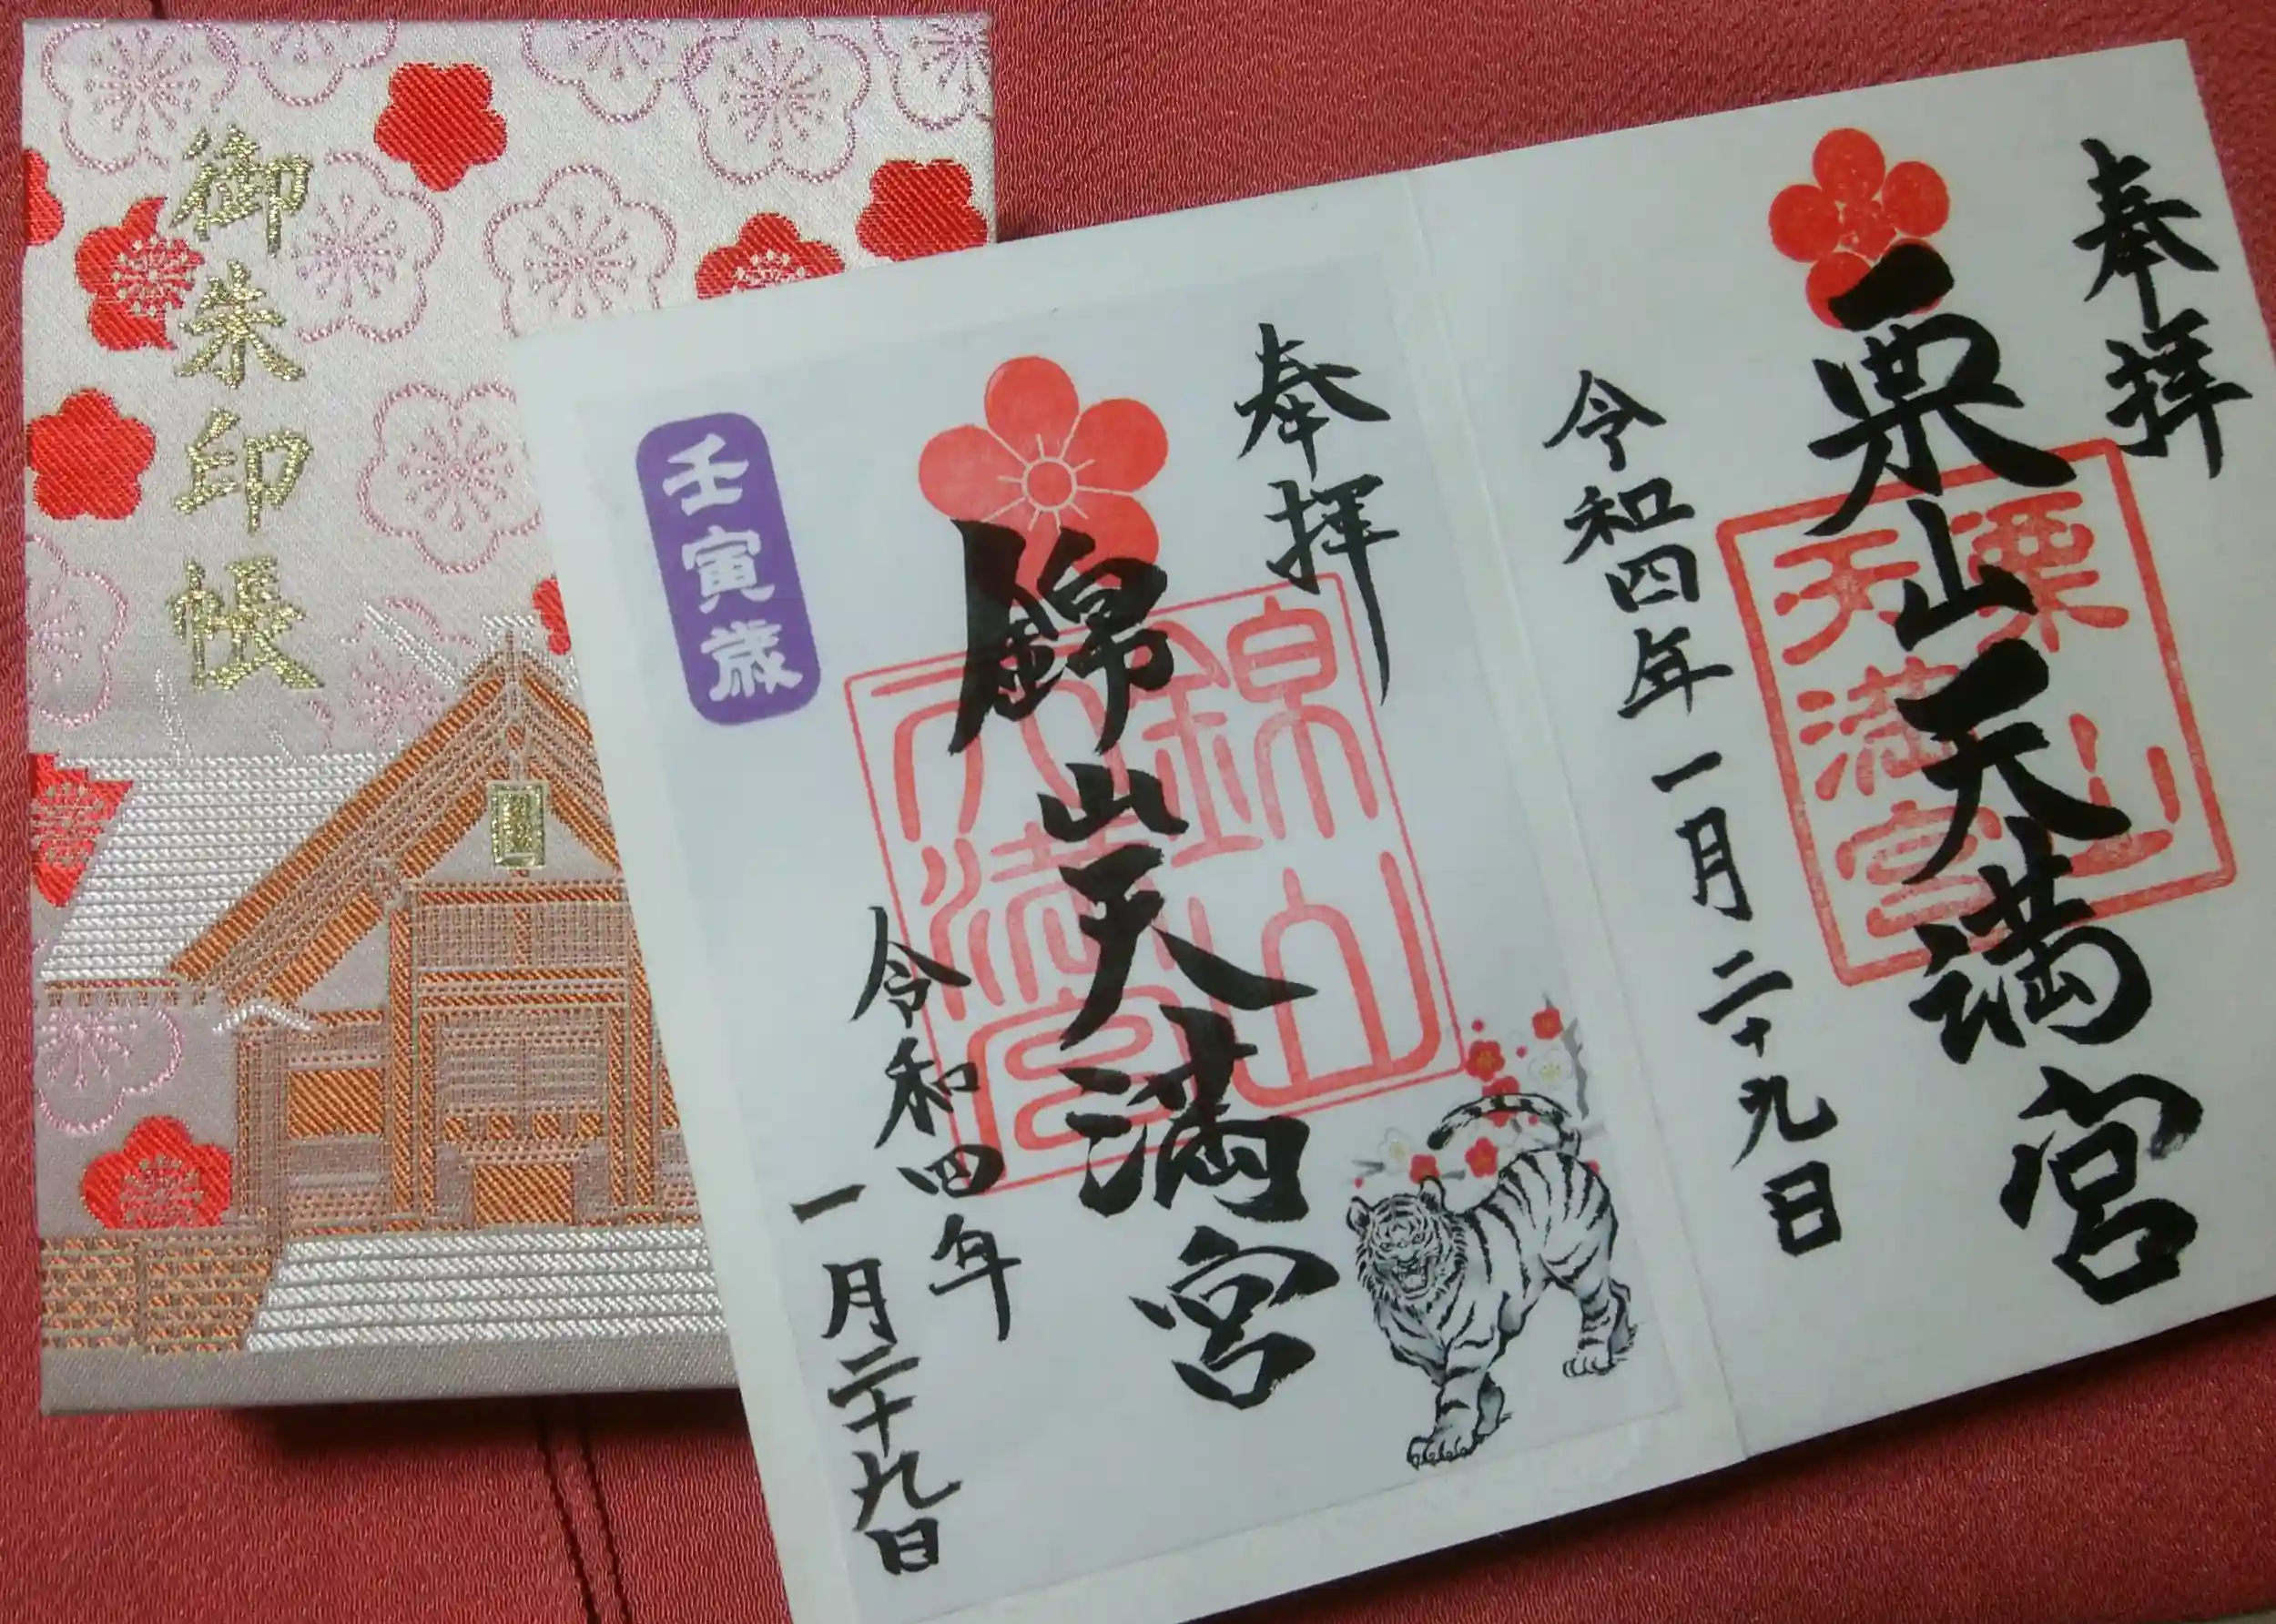 御朱印帳
奉拝
栗山天満宮
栗山
天満宮
令和四年一月二十九日
奉拝
錦山天満宮
錦山
天満宮
令和四年
一月二十九日
壬寅歳